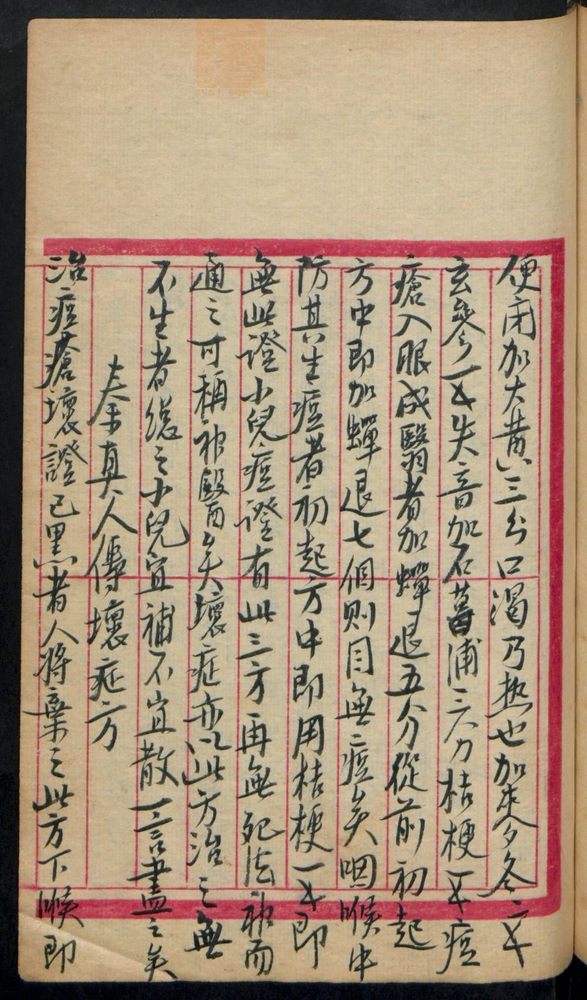 便閉加大黃三分口渴乃熱也加麥冬二士
玄參一士失音加石菖浦三分桔梗一士痘
瘡入眼成翳者加蟬退五分從前初起
方中即加蟬退七個則目無痘矣咽喉中
防其生痘者初起方中即用桔梗一士即
無此證小兒痘證有此三方再無死法神而
通之可稱神醫矣壞症亦以此方治之無
不生者總之小兒宜補不宜散一言盡之矣
秦真人傳壞症方
治痘瘡壞證已黑者人將棄之此方下喉即